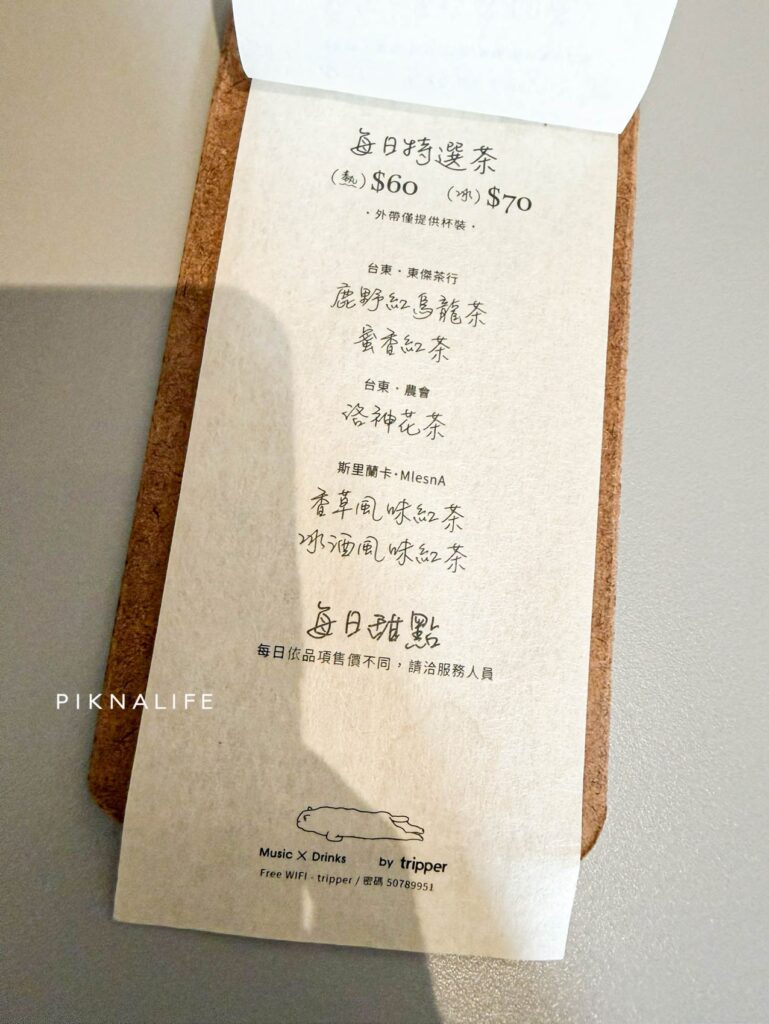 每日特選茶
(熱) $60 (冰) $70
·外帶僅提供杯裝·
台東·東傑茶行
鹿野紅烏龍茶
蜜香紅茶
台東·農會
洛神花茶
斯里蘭卡·MlesnA
香草風味紅茶
冰酒風味紅茶
每日甜點
每日依品項售價不同，請洽服務人員
PIKNALIFE
Music X Drinks by tripper
Free WIFI - tripper / 密碼 50789951